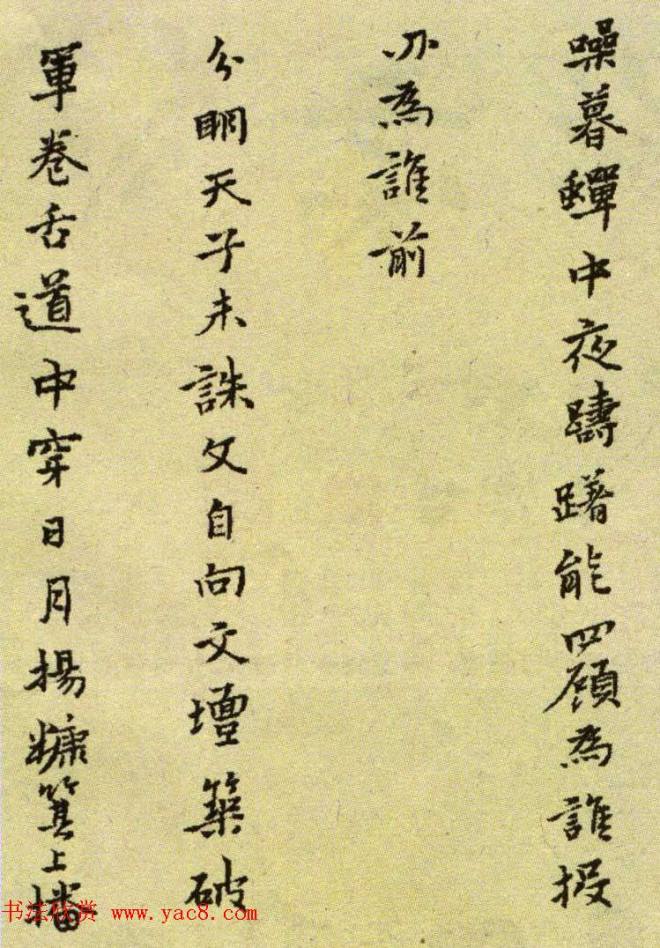 噪暮蟬中夜躊躇能四顧為誰投
刃為誰前
分明天子未誅文自向文壇築破
軍卷舌道中穿日月揚糠箕上播
书法欣赏 www.yac8.com